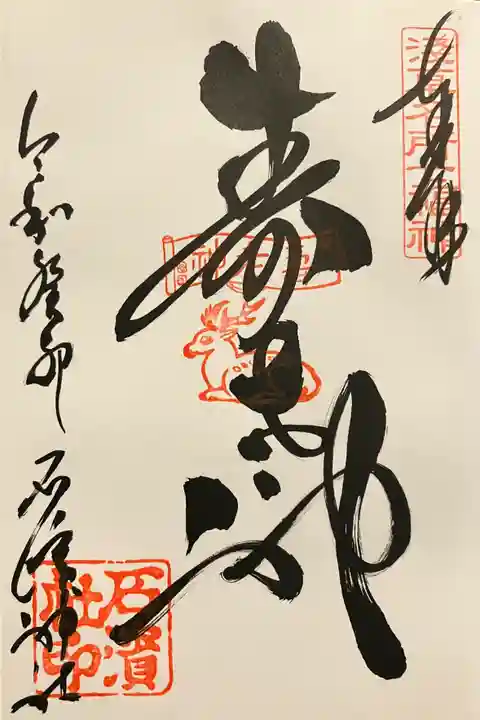 浅草名所七福神
寿老神
寿老神
令和癸卯 石濱神社
石濱
社印